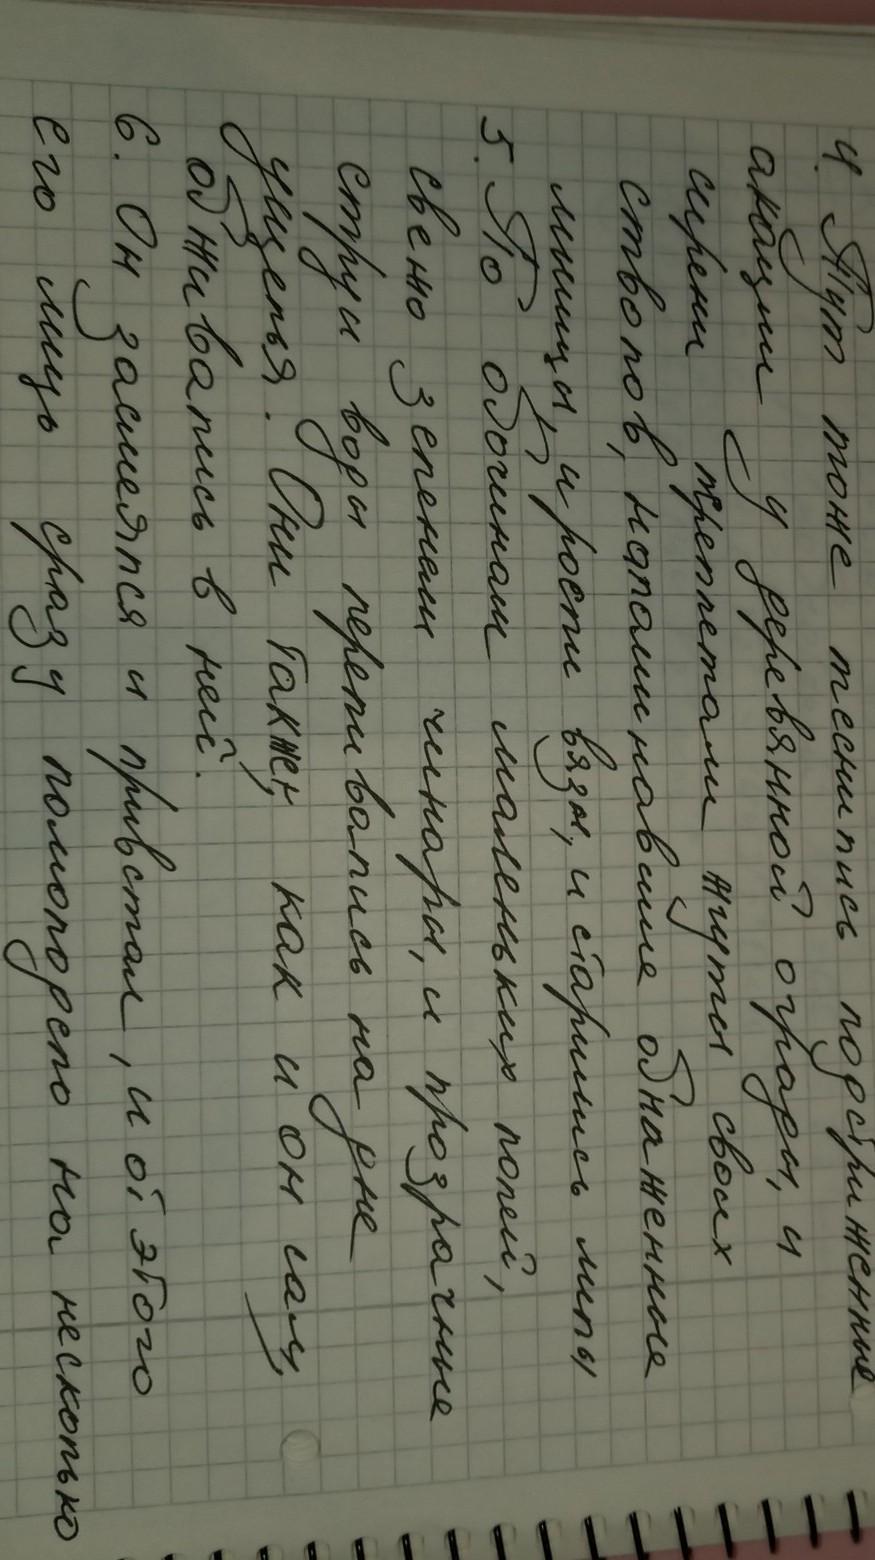 4. Тут тоже теснились подстриженные
акации у деревянной ограды, и
сирени трепетали жуты своих
стволов, напоминавшие обнаженные
мышцы, и росли вязы, и старились липы
5. По обочинам маленьких полей,
свежо зеленели чинары, и прозрачные
струи воды переливались на дне
ущелья. Они также, как и он сам,
обживались в ней.
6. Он засмеялся и привстал, и от этого
его лицо сразу помолодело на несколько